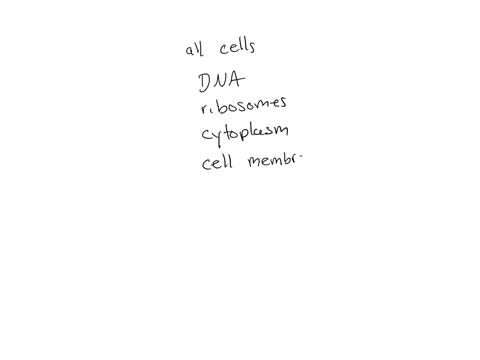 all cells
DNA
ribosomes
cytoplasm
cell membr